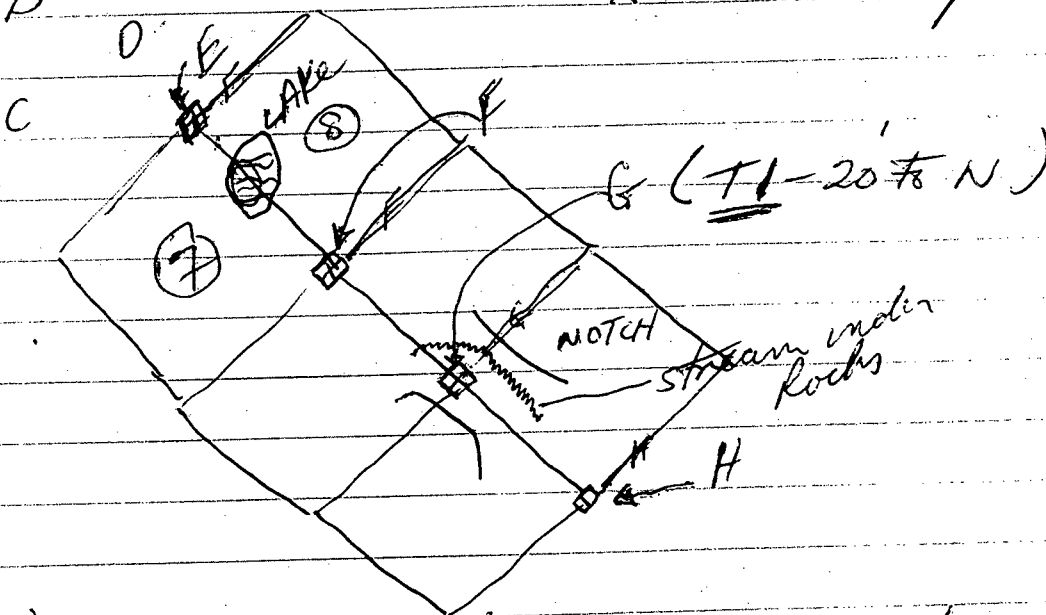 D
E
E
LAKE
C
8
F
F
G (T1-20' to N)
7
G
NOTCH
stream under
Rocks
H
H